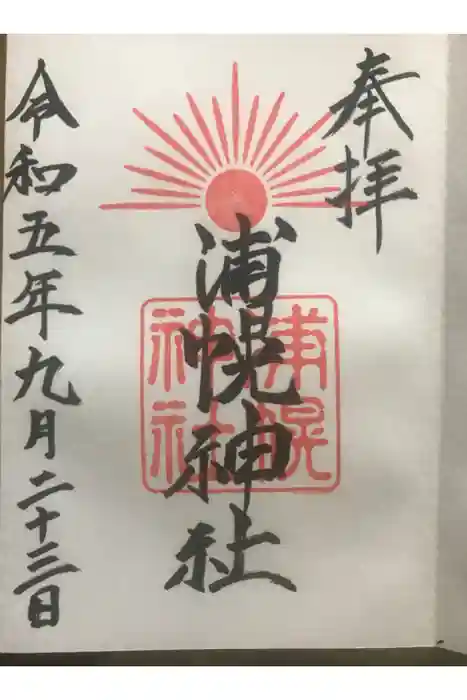 奉拝
浦幌神社
浦幌
神社
令和五年九月二十三日